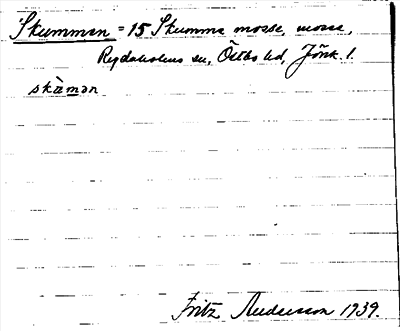 Skumman = 15 Skumma mosse, mosse,
Rydaholms sn, Östbo hd, Jönk. l.
skùmən
Fritz Andersson 1939.